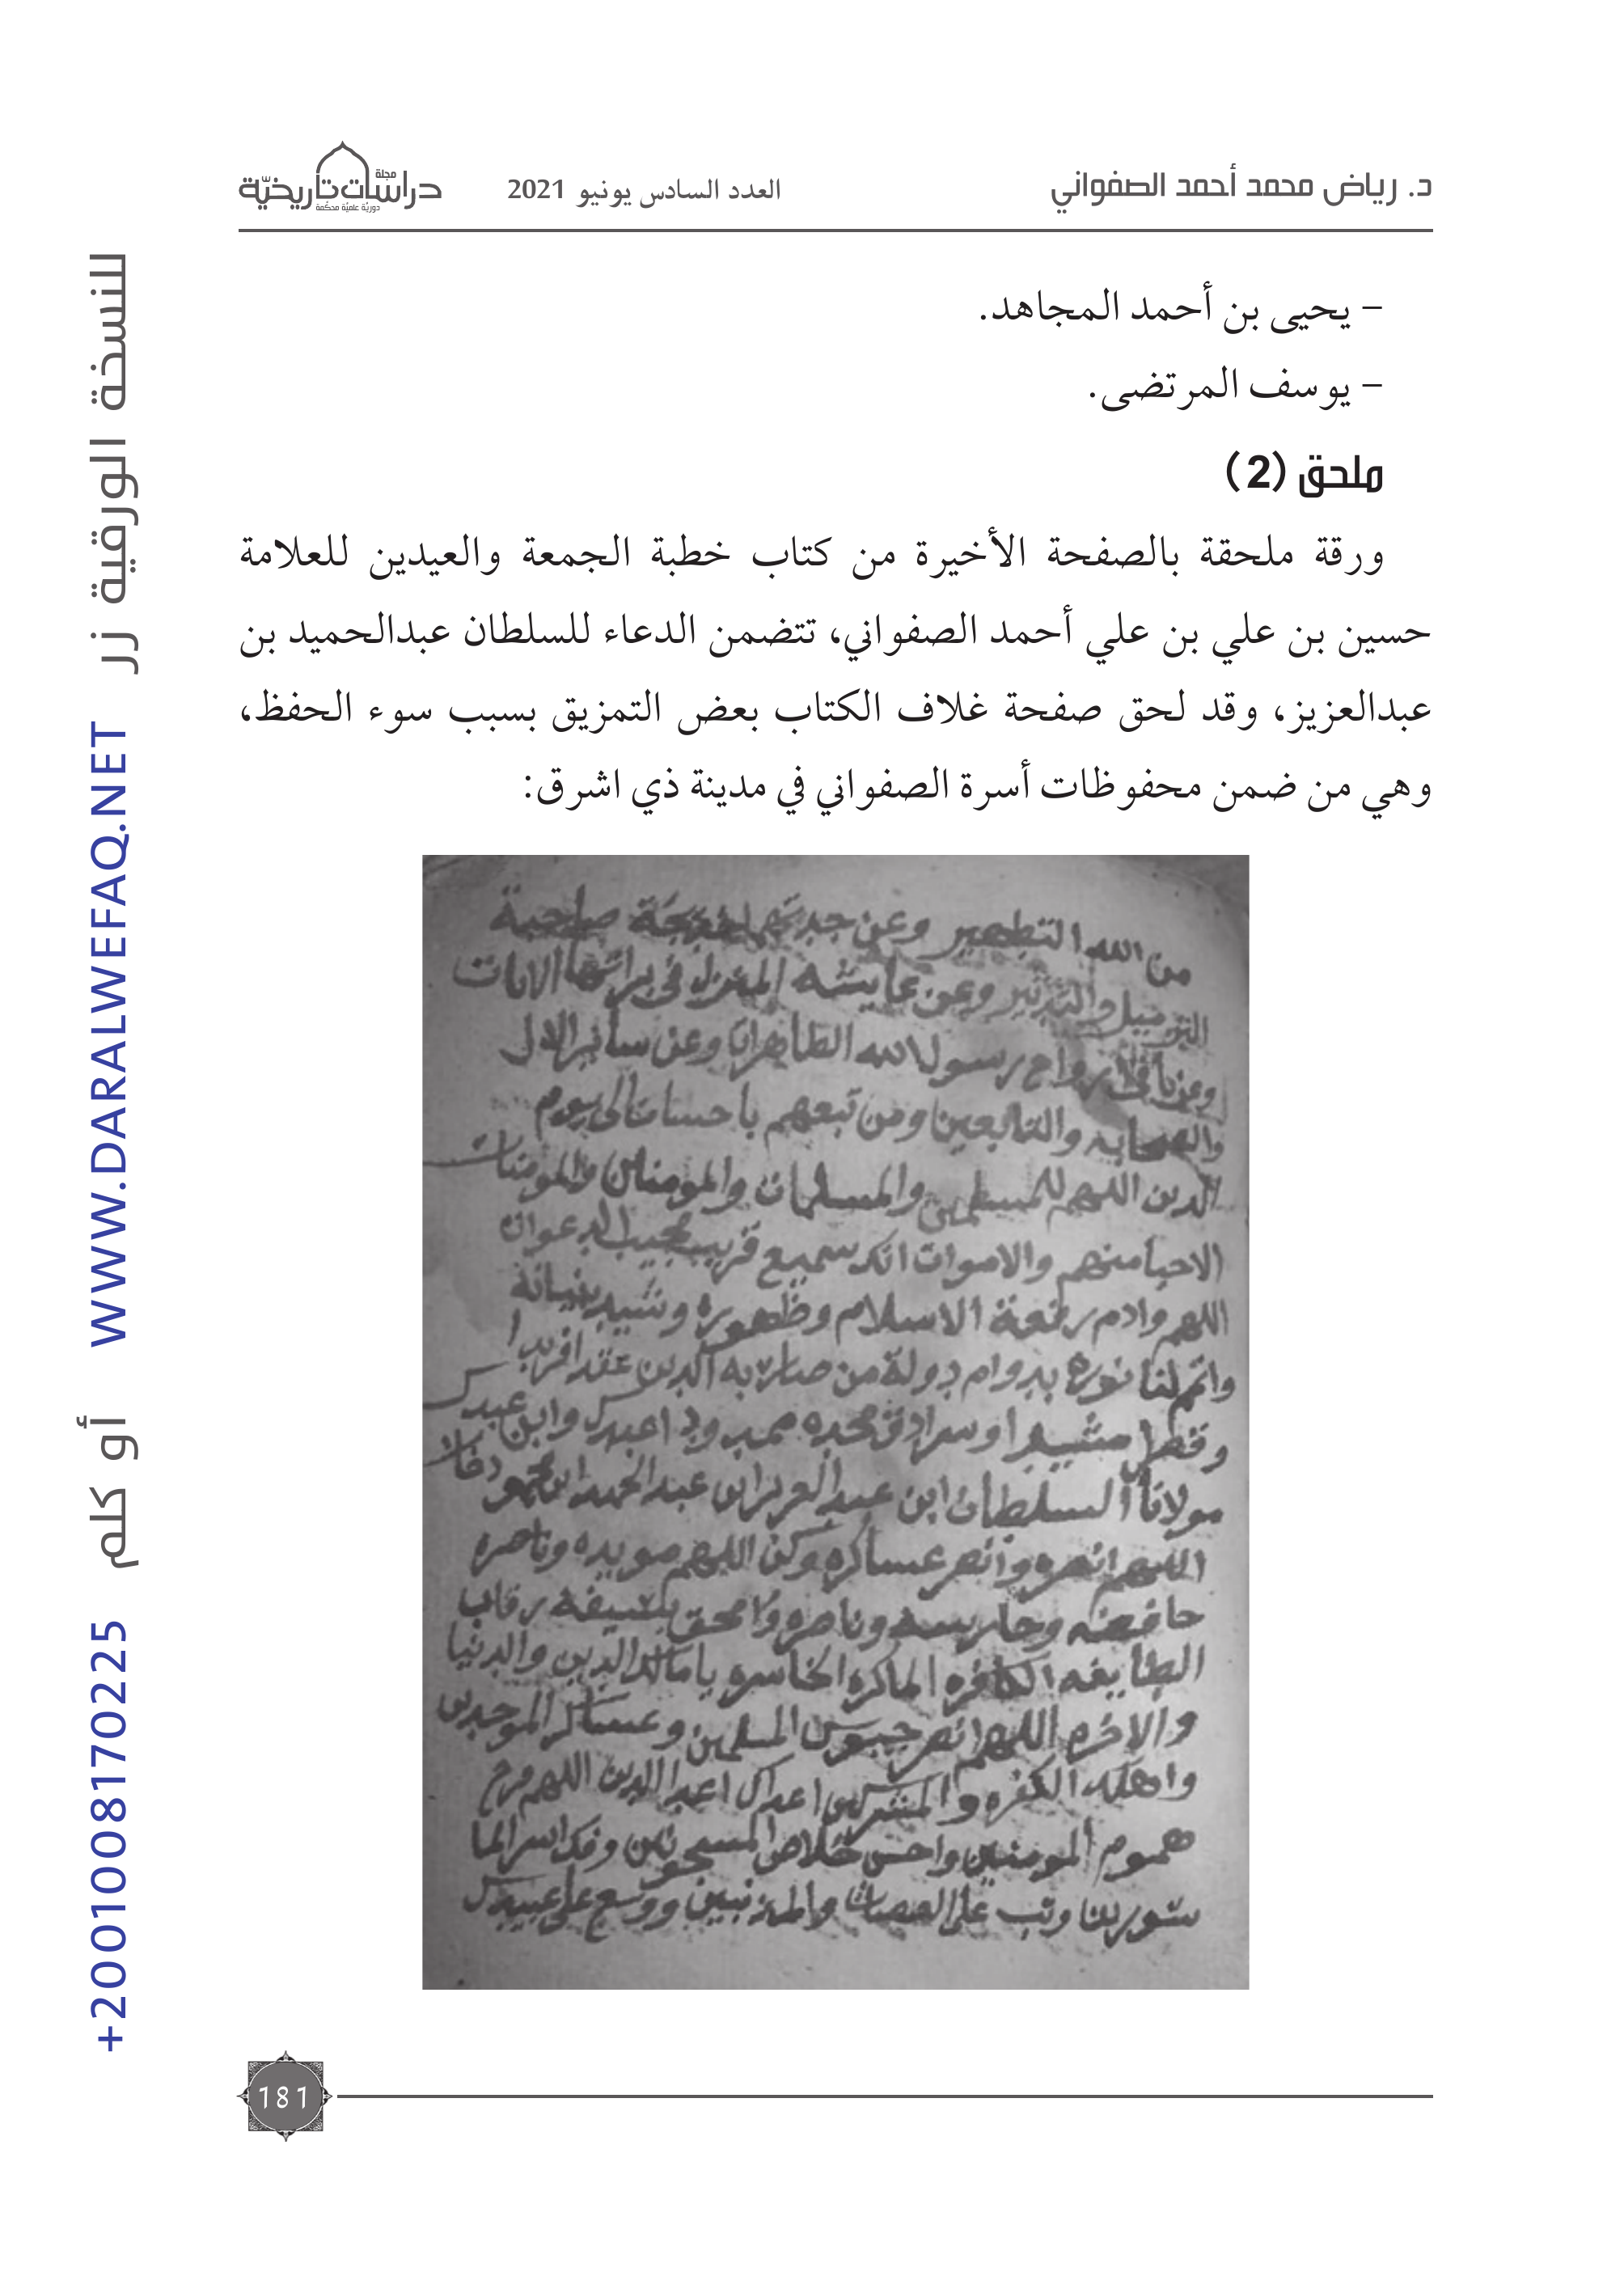 د. رياض محمد أحمد الصفواني
العدد السادس يونيو 2021
مجلة
دراسات تاريخيّة
دوريّة علميّة محكّمة
– يحيى بن أحمد المجاهد.
– يوسف المرتضى.
ملحق (2)
ورقة ملحقة بالصفحة الأخيرة من كتاب خطبة الجمعة والعيدين للعلامة
حسين بن علي بن علي أحمد الصفواني، تتضمن الدعاء للسلطان عبدالحميد بن
عبدالعزيز، وقد لحق صفحة غلاف الكتاب بعض التمزيق بسبب سوء الحفظ،
وهي من ضمن محفوظات أسرة الصفواني في مدينة ذي اشرق:
من الله التطهير وعن خديجة صاحبة
والتدثير وعن عايشه المنزل في برائتها الايات
رسول الله الطاهرات وعن سائر الال
والصحابه والتابعين ومن تبعهم باحسان الى يوم
الدين اللهم للمسلمين والمسلمات والمومنين والمومنات
الاحيا منهم والاموات انك سميع قريب مجيب الدعوات
اللهم وادم رفعة الاسلام وظهوره وشيد بنيانه
واتم لنا نوره بدوام دولة من صار به الدين عقد
وقصرا مشيدا وسرادق مجده وابن عبدك
مولانا السلطان ابن عبد العزيز ابن عبد الحميد ابن محمود
اللهم انصره وانصر عساكره وكن اللهم مويده وناصره
وحارسه وناصره وامحق بسيفه رقاب
الطايفه الكافره الماكره الخاسره يا مالك الدين والدنيا
والاخره اللهم انصر جيوش المسلمين وعساكر الموحدين
واهلك الكفره والمشركين اعداك اعدا الدين اللهم فرج
هموم المومنين واحسن خلاص المسجونين وفك اسر الما
سورين وتب على العصاة والمذنبين ووسع على عبيدك
181
للنسخة الورقية زر WWW.DARALWEFAQ.NET أو كلم +2001008170225